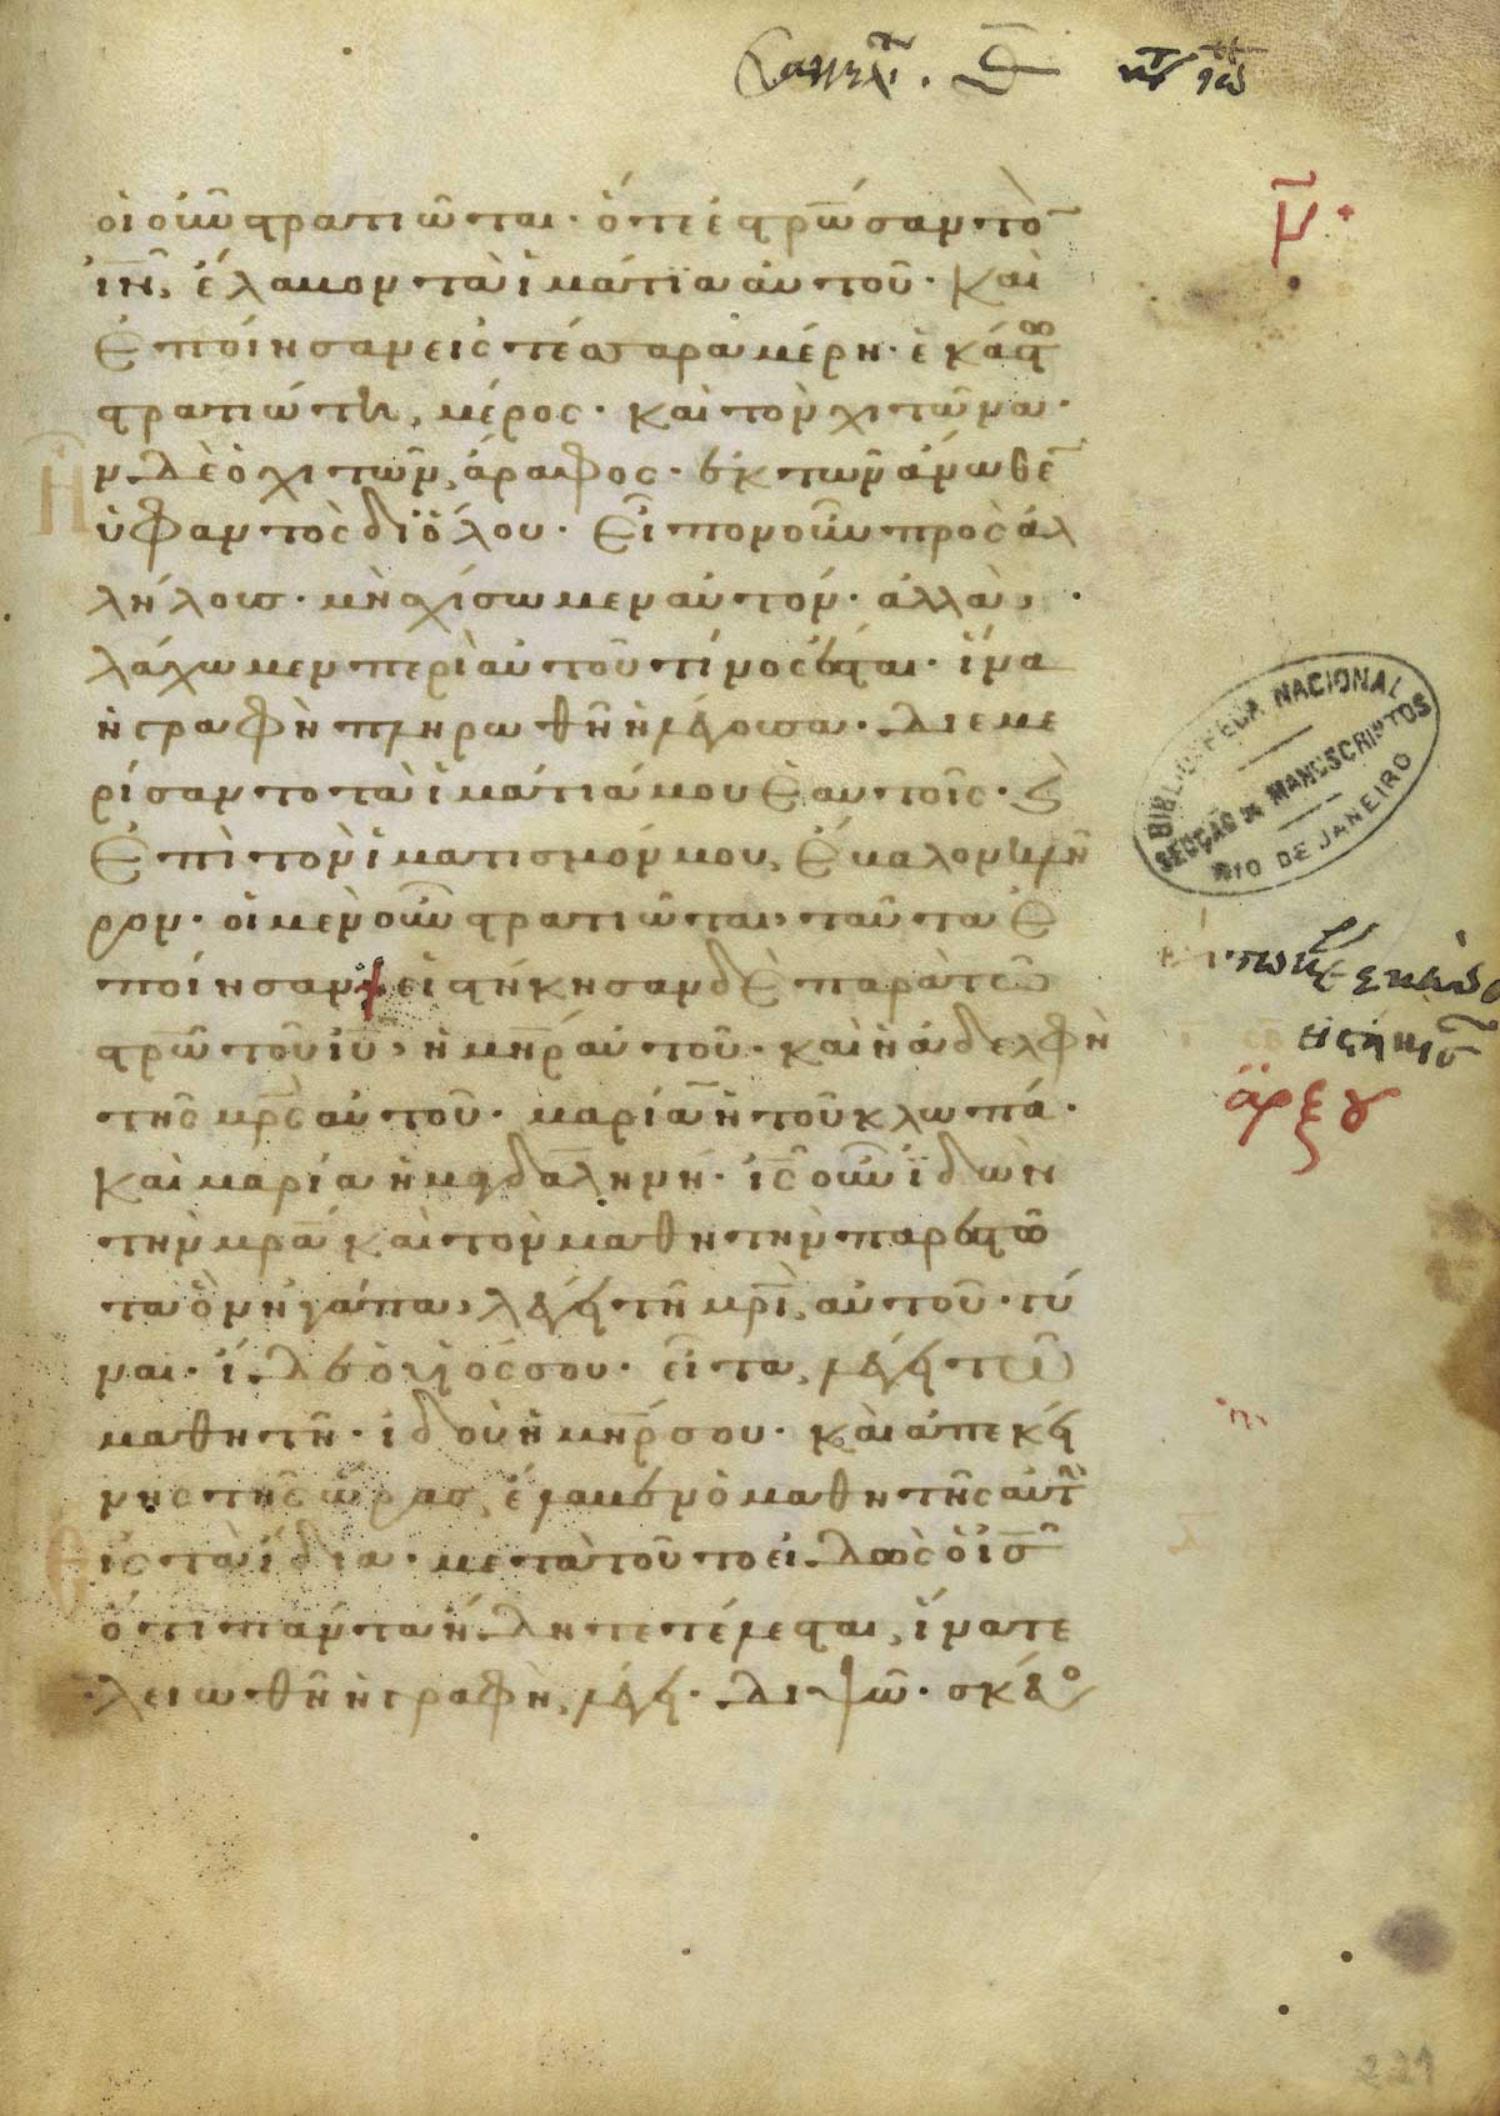 οἱ οὖν στρατιῶται· ὅτε ἐστρωσαν τὸ
ιν, ἔλαβον τὰ ἱμάτια αὐτοῦ· καὶ
ἐποίησαν εἰς τέσσαρα μέρη· ἑκάστω
στρατιώτη, μέρος· καὶ τὸν χιτῶνα·
Ην δὲ ὁ χιτὼν, ἄραφος· ἐκ τῶν ἄνωθε
ὑφαντὸς δι' ὅλου· εἶπον οὖν πρὸς ἀλ
λήλους· μὴ σχίσωμεν αὐτόν· ἀλλὰ,
λάχωμεν περὶ αὐτοῦ τίνος ἔσται· ἵνα
ἡ γραφὴ πληρωθῆ ἡ λέγουσα· διεμε
ρίσαντο τὰ ἱμάτιά μου ἑαυτοῖς· καὶ
ἐπὶ τὸν ἱματισμόν μου, ἔβαλον κλῆ
ρον· οἱ μὲν οὖν στρατιῶται, ταῦτα ἐ
ποίησαν εἱστήκησαν δὲ παρὰ τῶ
στρω τοῦ ιυ, ἡ μηρ αὐτοῦ· καὶ ἡ ἀδελφὴ
τῆς μρς αὐτοῦ· μαρία ἡ τοῦ κλωπά·
καὶ μαρία ἡ μαγδαληνή· ις οὖν ἰδὼν
τὴν μρα καὶ τὸν μαθητὴν παρεστῶ
τα ὃν ἠγάπα, λέγει τῆ μρι αὐτοῦ· γύ
ναι· ἴδε ὁ υἱός σου· εἶτα, λέγει τῶ
μαθητῆ· ἰδοὺ ἡ μηρ σου· καὶ ἀπ' ἐκεί
νης τῆς ὥρας, ἔλαβεν ὁ μαθητὴς αὐτὴν
εἰς τὰ ἴδια· μετὰ τοῦτο εἰδὼς ὁ ις
ὅτι πάντα ἤδη τετέλεσται, ἵνα τε
λειωθῆ ἡ γραφὴ, λέγει· διψῶ· σκεῦο
μ
BIBLIOTHECA NACIONAL
SECÇÃO DE MANUSCRIPTOS
RIO DE JANEIRO
ἀρξου
221